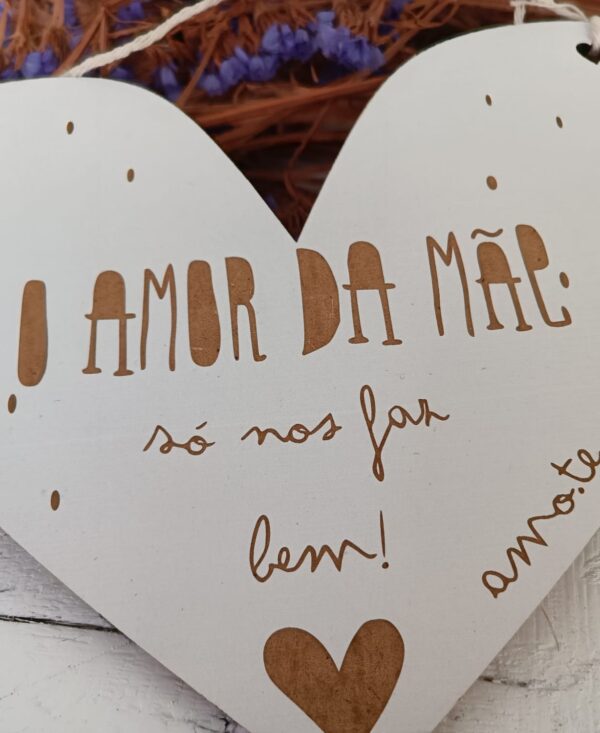 O AMOR DA MÃE
só nos faz
bem!
amo.te